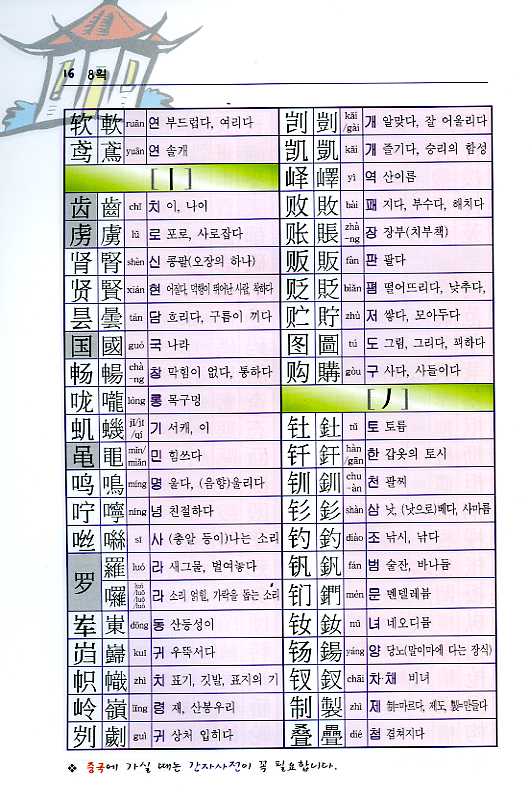 16 8획
软 軟 ruǎn 연 부드럽다, 여리다
鸢 鳶 yuān 연 솔개
[ 丨 ]
齿 齒 chǐ 치 이, 나이
虏 虜 lǔ 로 포로, 사로잡다
肾 腎 shèn 신 콩팥(오장의 하나)
贤 賢 xián 현 어질다, 덕행이 뛰어난 사람, 착하다
昙 曇 tán 담 흐리다, 구름이 끼다
国 國 guó 국 나라
畅 暢 chà-ng 창 막힘이 없다, 통하다
咙 嚨 lóng 롱 목구멍
虮 蟣 jǐ/jī/qí 기 서캐, 이
黾 黽 mǐn/miǎn 민 힘쓰다
鸣 鳴 míng 명 울다, (음향)울리다
咛 嚀 níng 녕 친절하다
咝 噝 sī 사 (총알 등이)나는 소리
罗 羅 luó 라 새그물, 벌여놓다
囉 라 소리 얽힐, 가락을 돕는 소리
岽 崬 dōng 동 산등성이
岿 巋 kuī 귀 우뚝서다
帜 幟 zhì 치 표기, 깃발, 표지의 기
岭 嶺 lǐng 령 재, 산봉우리
刿 劌 guì 귀 상처 입히다
剀 剴 kǎi/gāi 개 알맞다, 잘 어울리다
凯 凱 kǎi 개 즐기다, 승리의 함성
峄 嶧 yì 역 산이름
败 敗 bài 패 지다, 부수다, 해치다
账 賬 zhà-ng 장 장부(치부책)
贩 販 fàn 판 팔다
贬 貶 biǎn 폄 떨어뜨리다, 낮추다,
贮 貯 zhù 저 쌓다, 모아두다
图 圖 tú 도 그림, 그리다, 꾀하다
购 購 gòu 구 사다, 사들이다
[ 丿 ]
钍 釷 tǔ 토 토륨
钎 釺 hàn/gān 한 갑옷의 토시
钏 釧 chu-àn 천 팔찌
钐 釤 shàn 삼 낫, (낫으로)베다, 사마륨
钓 釣 diào 조 낚시, 낚다
钒 釩 fán 범 술잔, 바나듐
钔 鍆 mén 문 멘델레븀
钕 釹 nǚ 녀 네오디뮴
钖 鍚 yáng 양 당노(말이마에 다는 장식)
钗 釵 chāi 차채 비녀
制 製 zhì 제 制=마르다, 제도, 製=만들다
叠 疊 dié 첩 겹쳐지다
❖ 중국에 가실 때는 간자사전이 꼭 필요합니다.